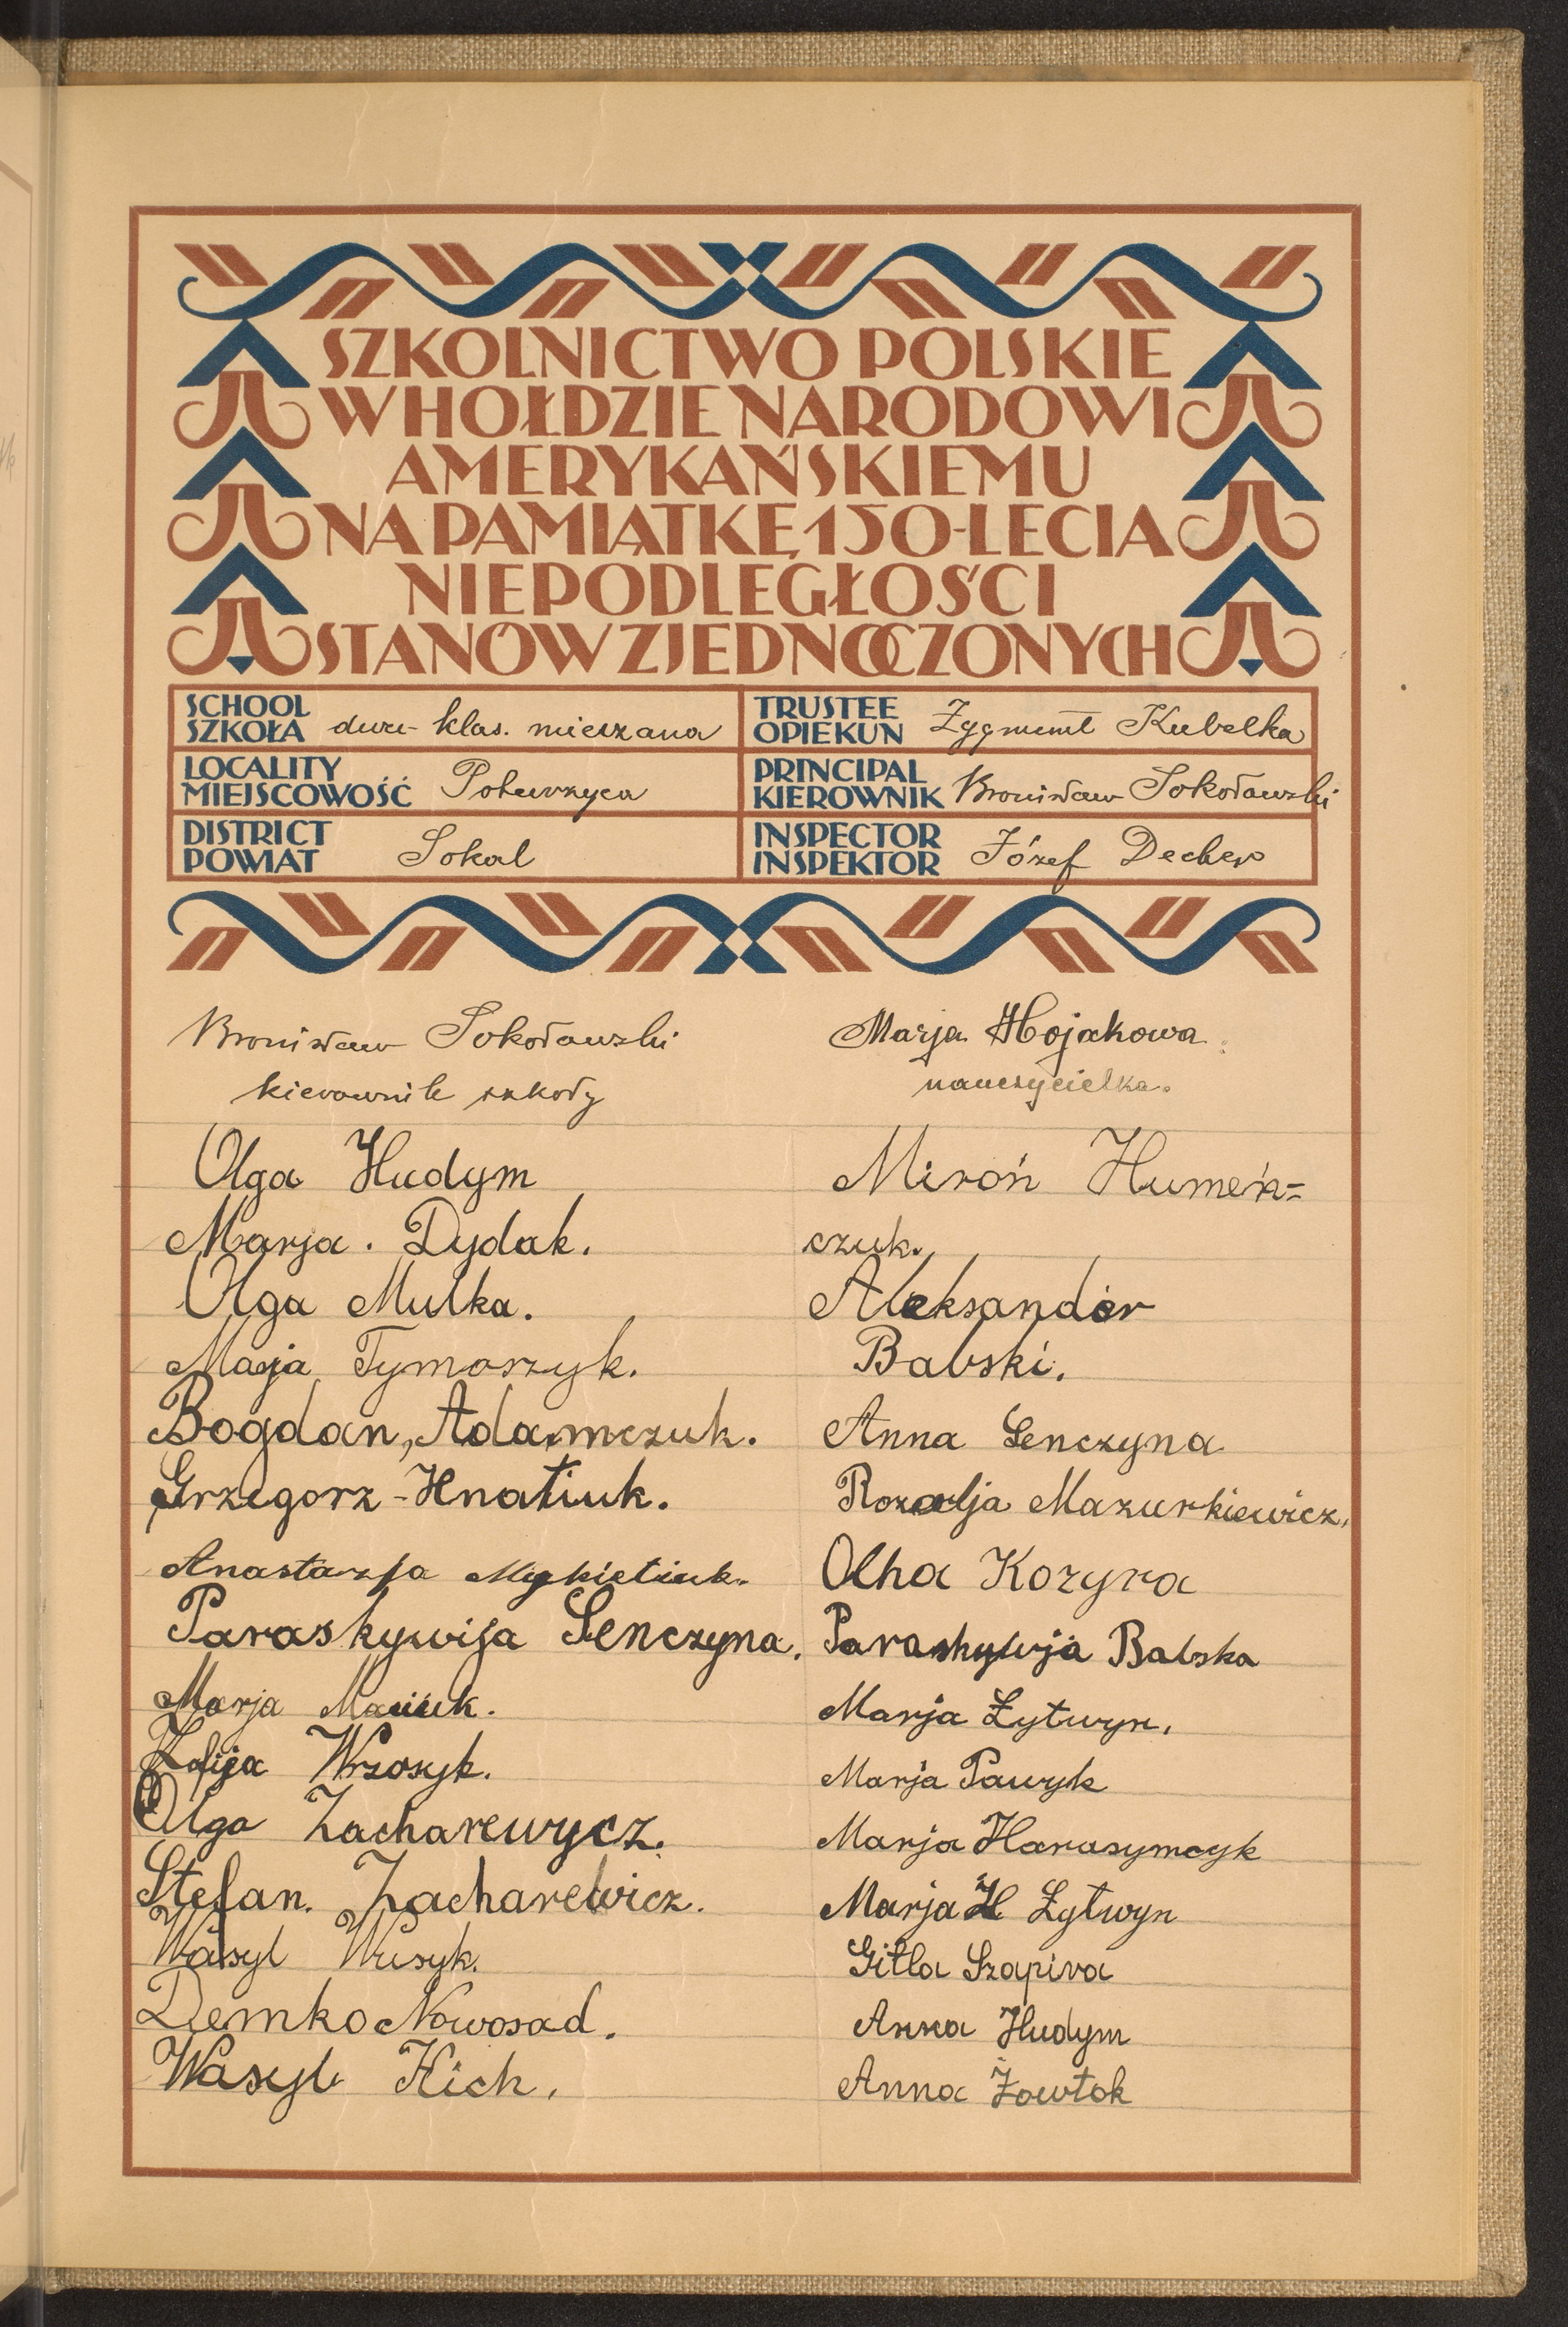 SZKOLNICTWO POLSKIE
W HOŁDZIE NARODOWI
AMERYKAŃSKIEMU
NA PAMIĄTKĘ 150-LECIA
NIEPODLEGŁOŚCI
STANÓW ZJEDNOCZONYCH
SCHOOL
SZKOŁA dwu-klas. mieszana
LOCALITY
MIEJSCOWOŚĆ Poturzyca
DISTRICT
POWIAT Sokal
TRUSTEE
OPIEKUN Zygmunt Kubelka
PRINCIPAL
KIEROWNIK Bronisław Sokołowski
INSPECTOR
INSPEKTOR Józef Decher
Bronisław Sokołowski
kierownik szkoły
Olga Hudym
Marja. Dydak.
Olga Mulka.
Marja Tymoszyk.
Bogdan, Adamczuk.
Grzegorz-Hnatiuk.
Anastazja Mykietiuk.
Paraskywija Senczyna.
Marja Maciuk.
Zofija Wrzosyk.
Olga Zacharewycz.
Stefan. Zacharewicz.
Wasyl Wusyk.
Demko Nowosad.
Wasyl Kich.
Marja Hojakowa
nauczycielka.
Miroń Humeń=
czuk.
Aleksander
Babski.
Anna Senczyna
Rozalja Mazurkiewicz.
Olha Kozyra
Paraskywja Babska
Marja Łytwyn.
Marja Pawyk
Marja Harasymcyk
Marja H Łytwyn
Gitla Szapira
Anna Hudym
Anna Żowtok